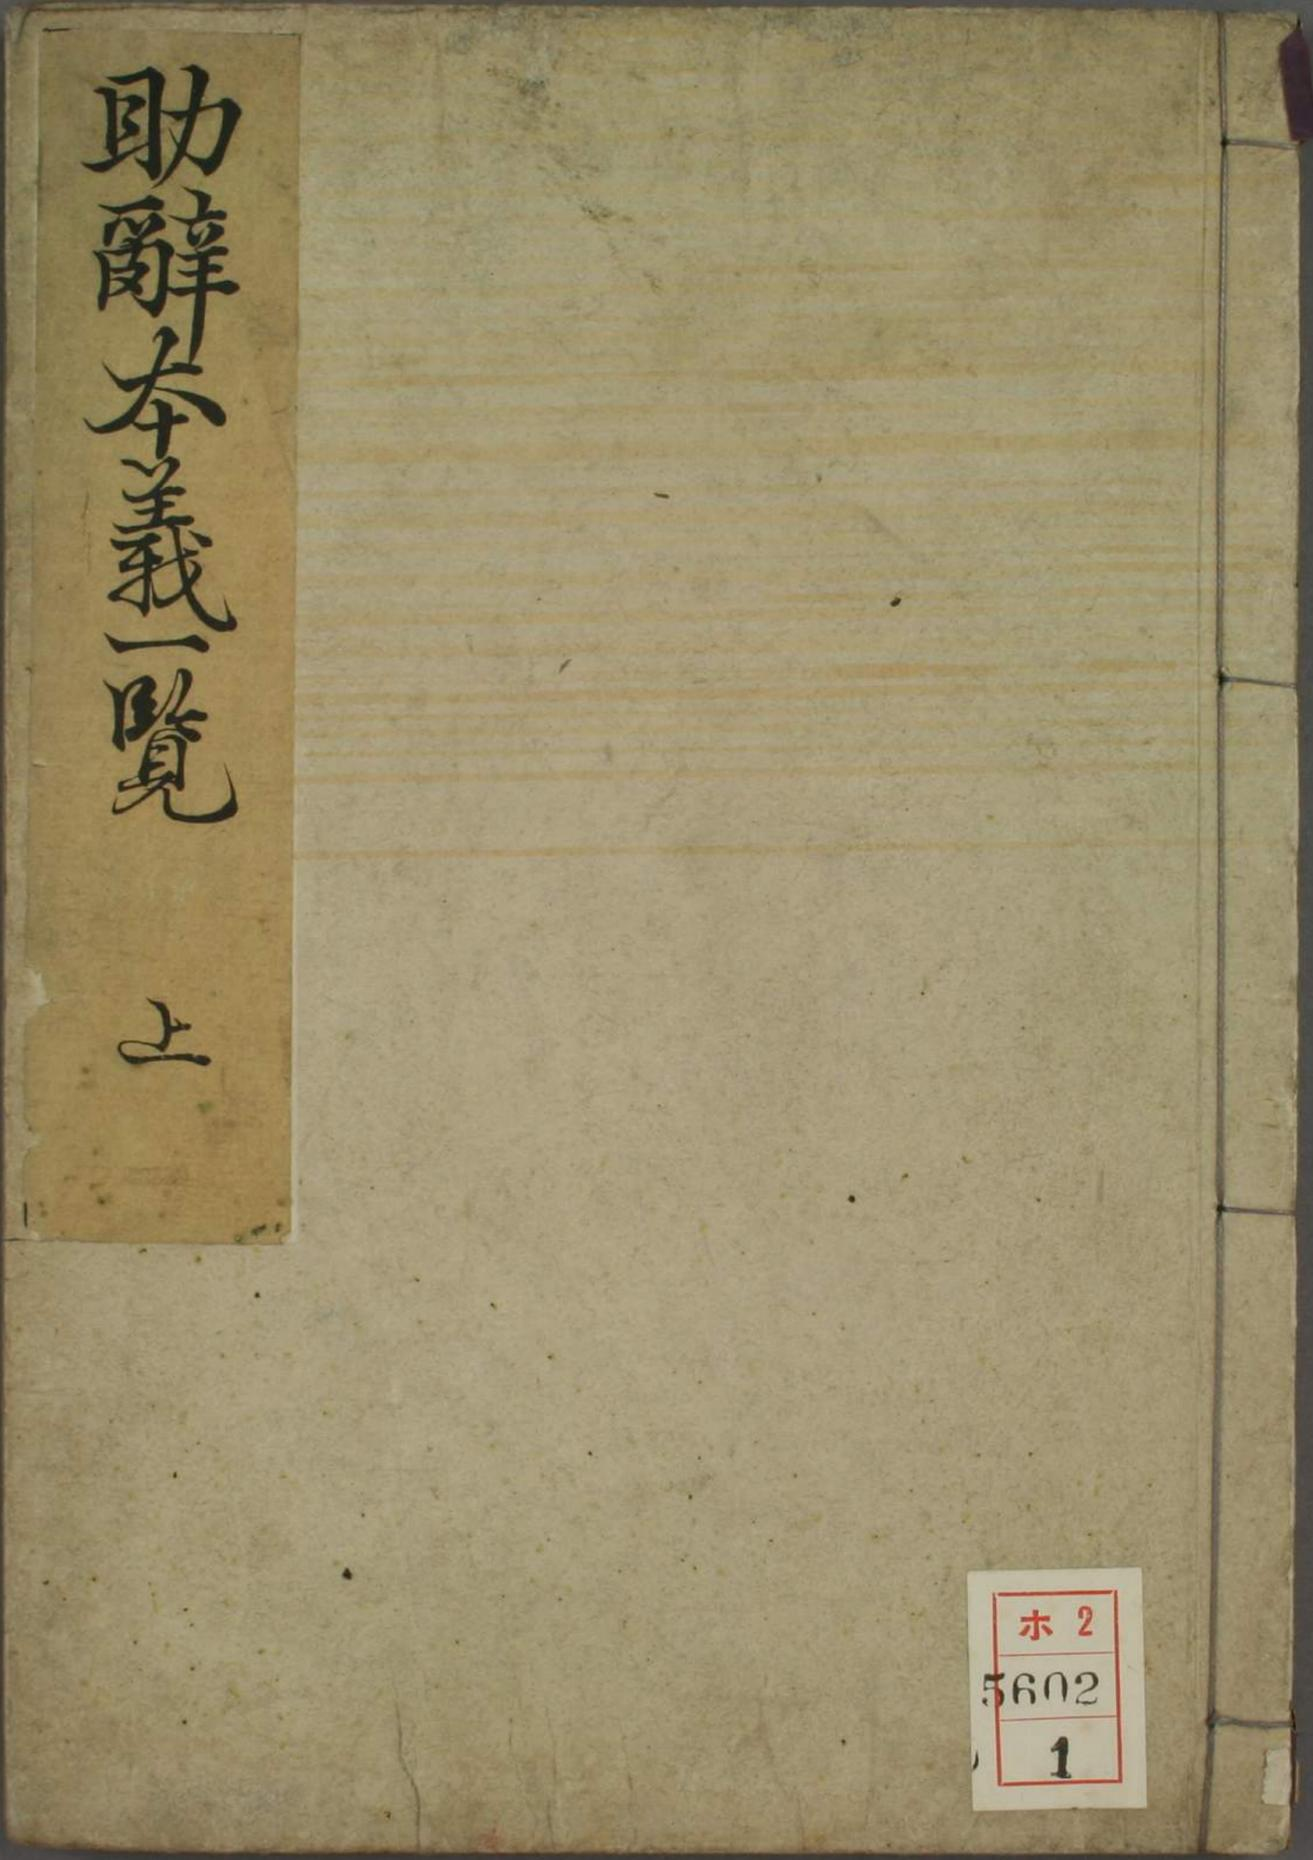 助辭本義一覧
上
ホ 2
5602
1